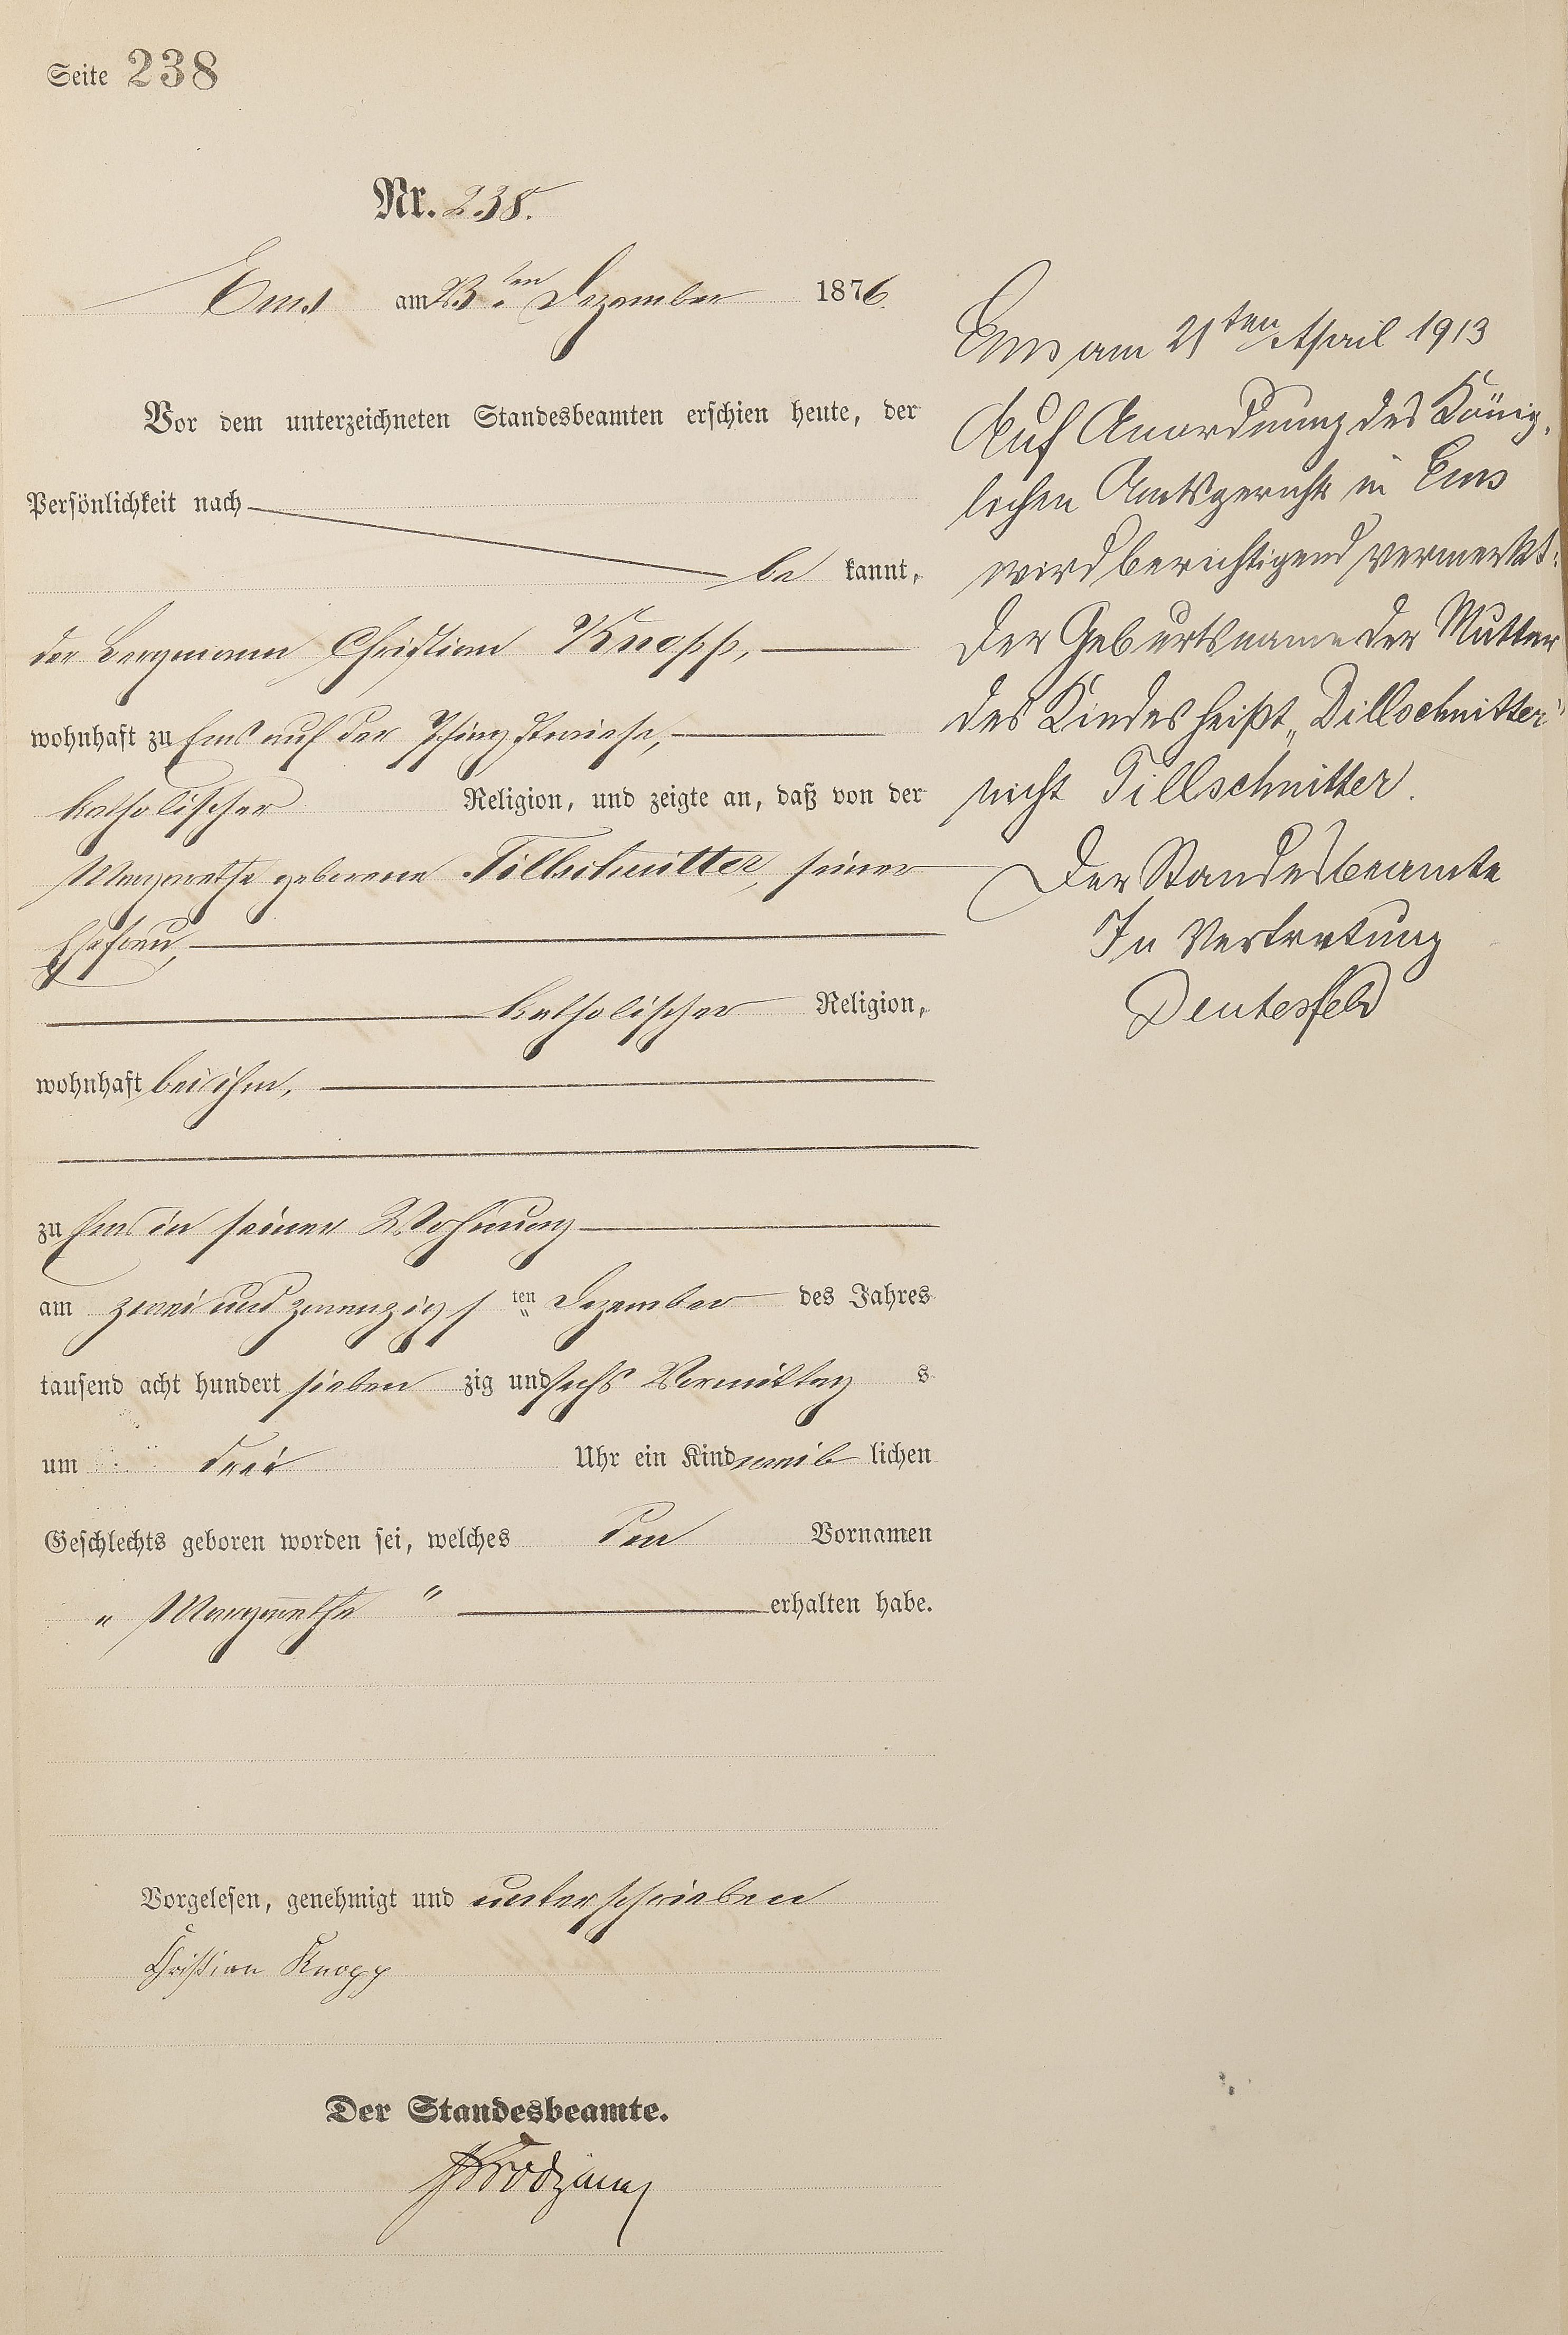 Seite 238
Nr. 238.
Ems am 23.ten Dezember 1876.
Vor dem unterzeichneten Standesbeamten erschien heute, der
Persönlichkeit nach
bekannt,
der Bergmann Christian Knopp,
wohnhaft zu Ems auf der Pfingstwiese,
katholischer Religion, und zeigte an, daß von der
Margarethe geborene Tillschnitter, seiner
Ehefrau,
katholischer Religion,
wohnhaft bei ihm,
zu Ems in seiner Wohnung
am zwei und zwanzigsten Dezember des Jahres
tausend acht hundert siebenzig und sechs Vormittags
um drei Uhr ein Kind weiblichen
Geschlechts geboren worden sei, welches den Vornamen
„ Margarethe “ erhalten habe.
Vorgelesen, genehmigt und unterschrieben
Christian Knopp
Der Standesbeamte.
Ems am 21ten April 1913
Auf Anordnung des König-
lichen Amtsgerichts in Ems
wird berichtigend vermerkt:
Der Geburtsname der Mutter
des Kindes heißt „Dillschnitter“
nicht Tillschnitter.
Der Standesbeamte
In Vertretung
Deutesfeld